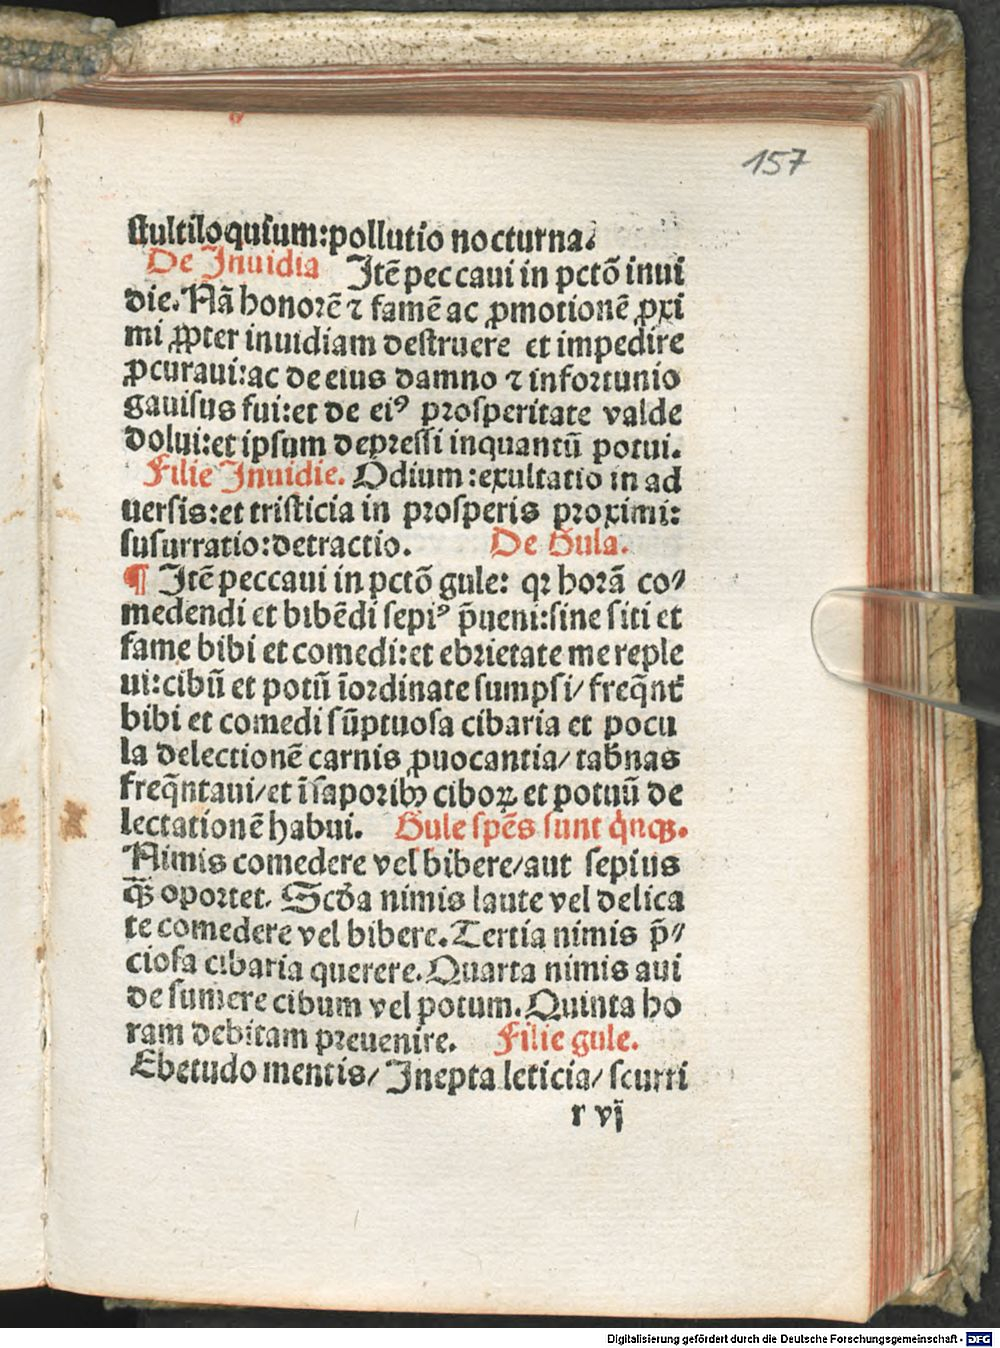 157
stultiloquium:pollutio nocturna.
De Inuidia Itē peccaui in pctō inui
die. Nā honorē ⁊ famē ac ꝓmotionē ꝓxi
mi ꝓpter inuidiam destruere et impedire
ꝓcuraui:ac de eius damno ⁊ infortunio
gauisus fui:et de eiꝰ prosperitate valde
dolui:et ipsum depressi inquantū potui.
Filie Inuidie. Odium:exultatio in ad
uersis:et tristicia in prosperis proximi:
susurratio:detractio. De Gula.
¶ Itē peccaui in pctō gule: qꝛ horā co⸗
medendi et bibēdi sepiꝰ p̄ueni:sine siti et
fame bibi et comedi:et ebrietate me reple
ui:cibū et potū īordinate sumpsi/ freq̄nt̄
bibi et comedi sūptuosa cibaria et pocu
la delectionē carnis ꝓuocantia/ tab̄nas
freq̄ntaui/et ī saporibꝰ ciboꝝ et potuū de
lectationē habui. Gule spēs sunt q̇nqꝫ.
Nimis comedere vel bibere/aut sepius
qꝫ̄ oportet. Scd̄a nimis laute vel delica
te comedere vel bibere. Tertia nimis p̄⸗
ciosa cibaria querere. Quarta nimis aui
de sumere cibum vel potum. Quinta ho
ram debitam preuenire. Filie gule.
Ebetudo mentis/ Inepta leticia/ scurri
r vj
Digitalisierung gefördert durch die Deutsche Forschungsgemeinschaft - DFG